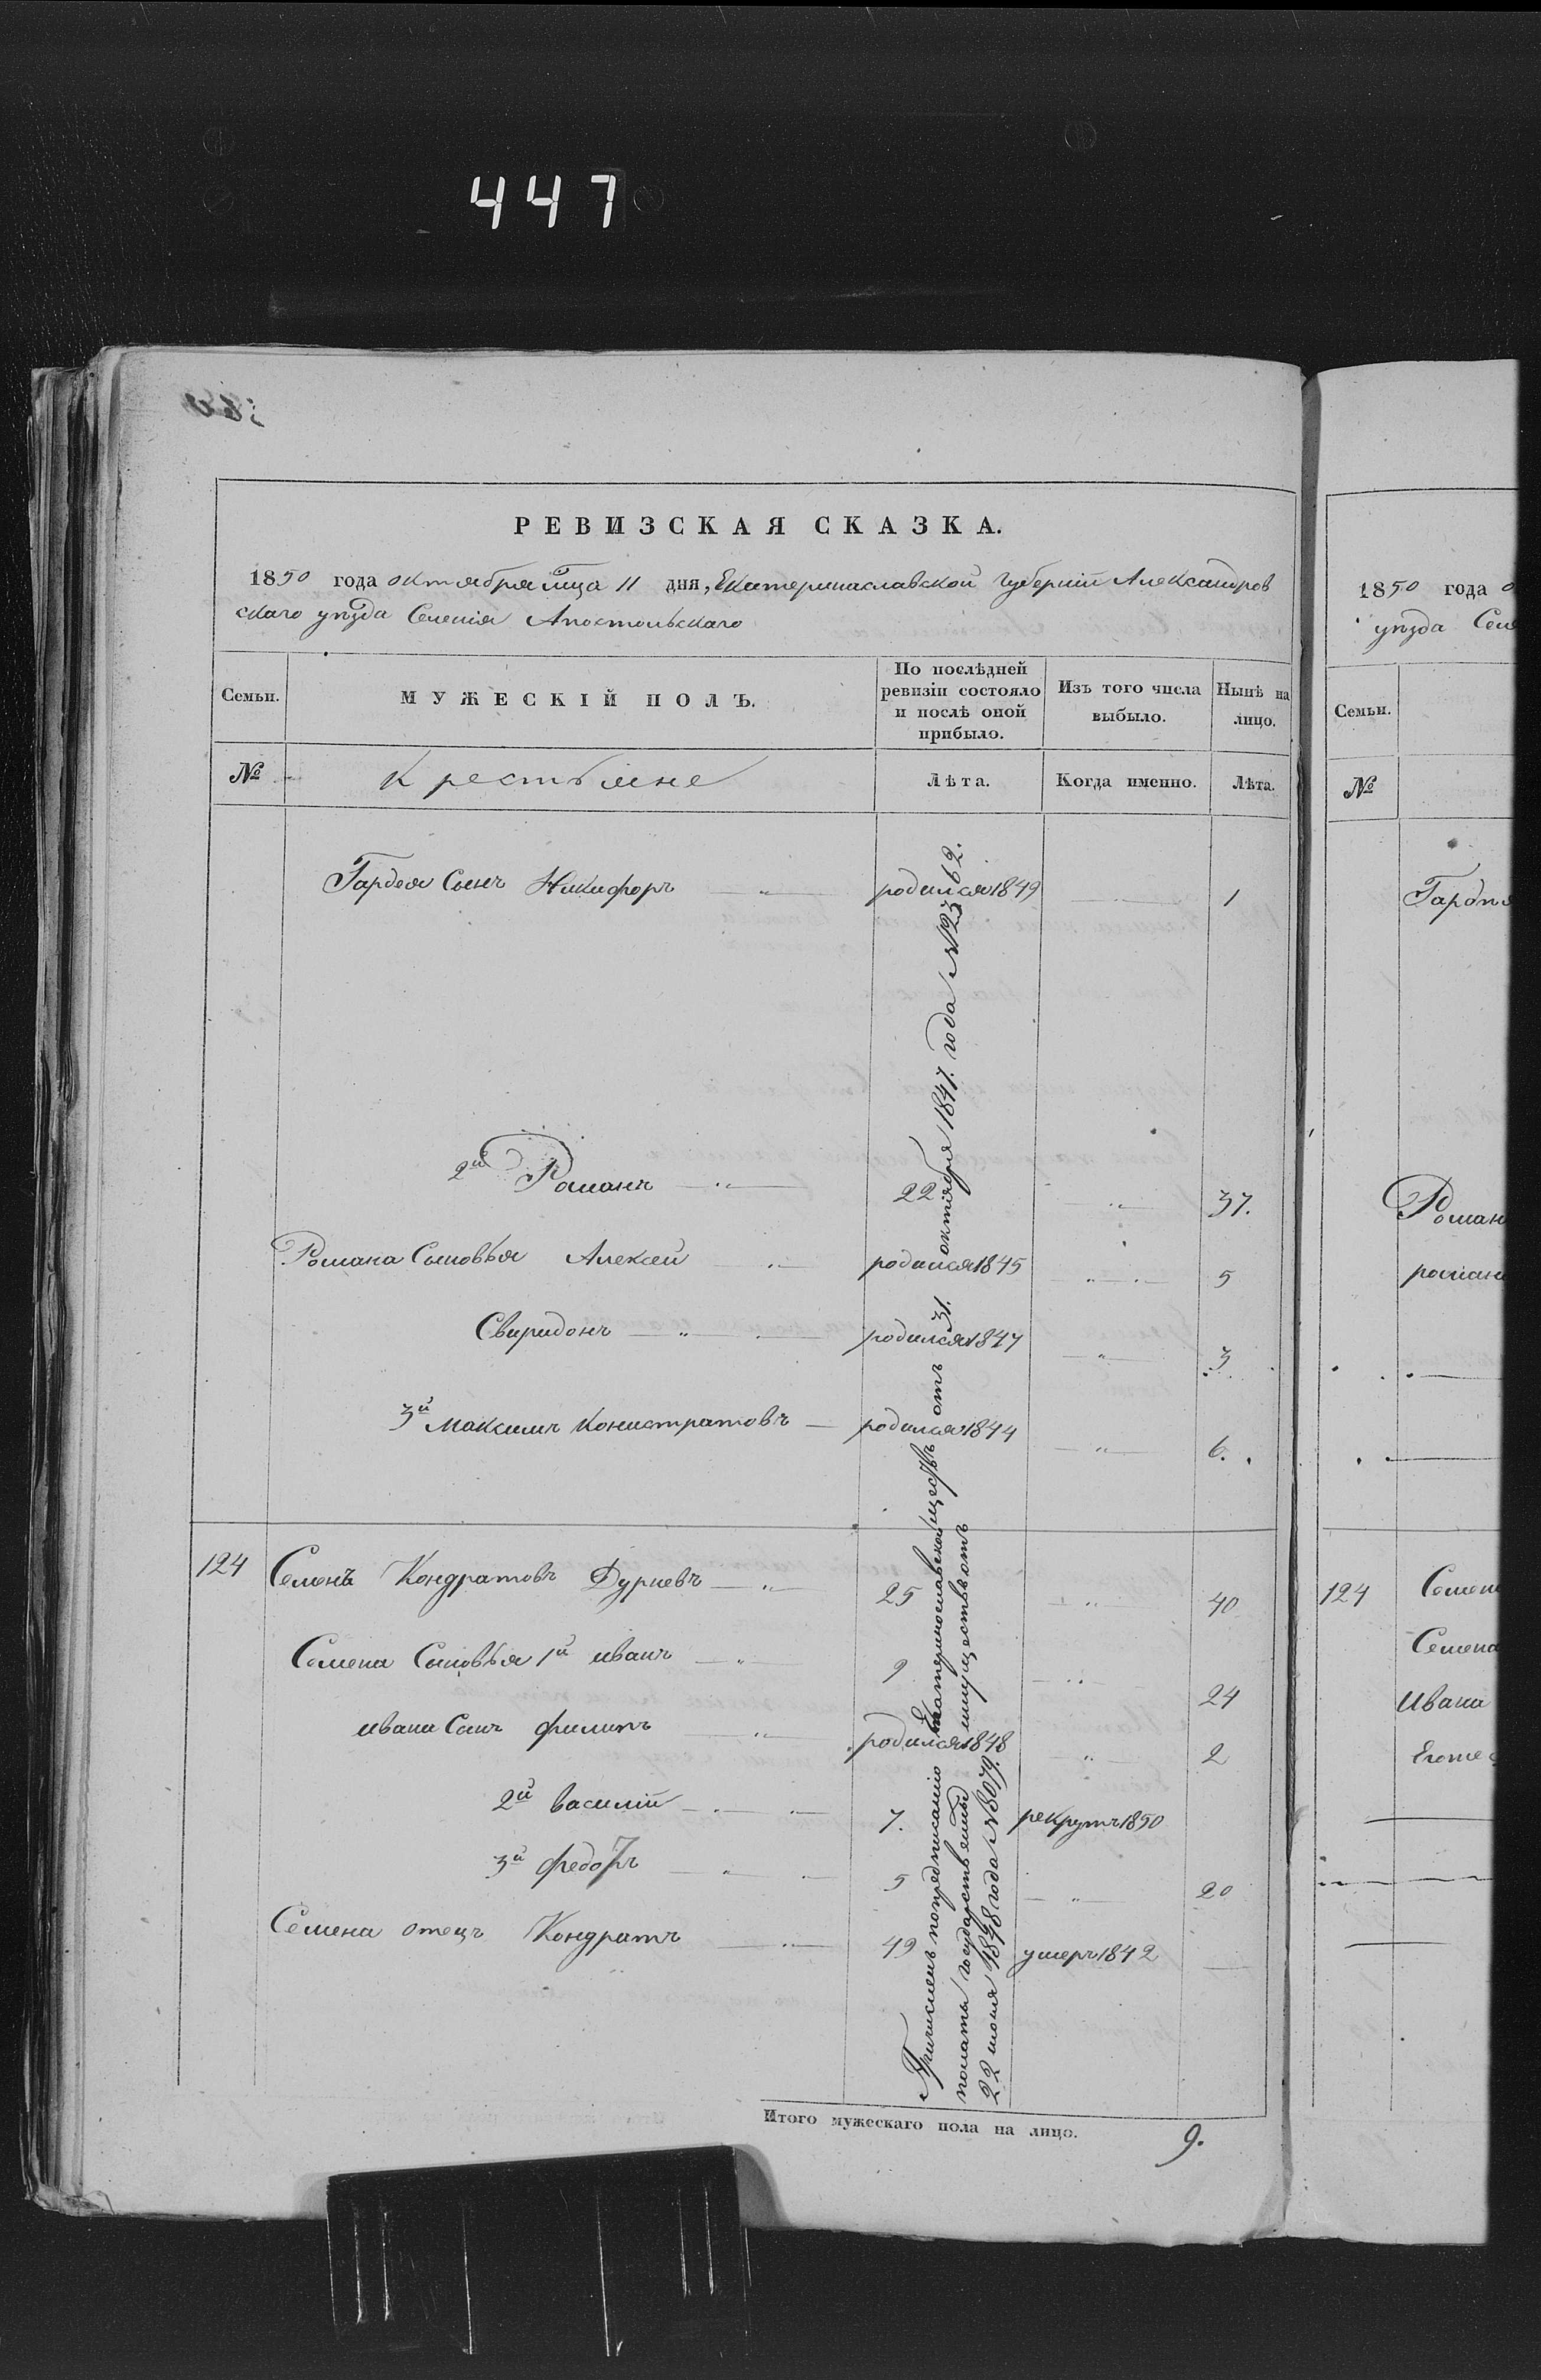 447
РЕВИЗСКАЯ СКАЗКА.
1850 года октября мца 11 дня, Екатеринаславской губернии Александров
скаго уѣзда Селенія Апостольскаго
Семьи.
МУЖЕСКІЙ ПОЛЪ.
По послѣдней ревизіи состояло и послѣ оной прибыло.
Изъ того числа выбыло.
Нынѣ на лицо.
№
Крестьяне
Лѣта.
Когда именно.
Лѣта.
Гардея Сынъ Никифоръ родился 1849 1
2й Романъ 22 37.
Романа Сыновья Алексей родился 1845 5
Свиридонъ родился 1847 3
3й Максимъ Конистратовъ родился 1844 6.
124 Семенъ Кондратовъ Дурневъ 25 40
Семена Сыновья 1й иванъ 9 24
ивана Сынъ филипъ родился 1848 2
2й василій 7. рекрутъ 1850
3й федоръ 5 20
Семена отецъ Кондратъ 49 умеръ 1842
Причисленъ попредписанію Екатеринославской
полаты государственныхъ имуществъ отъ 31. октября 1847. года №2362.
22 июня 1848 года №8079.
Итого мужескаго пола на лицо. 9.
1850 года
уѣзда
Семьи.
№
124
Семена
Ивана